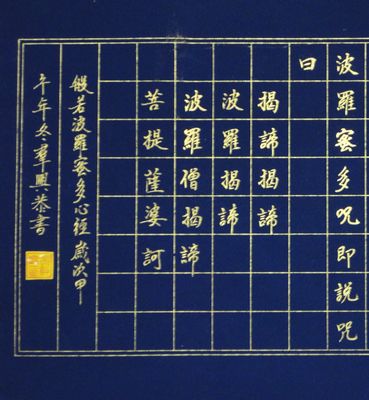 波羅蜜多呪即說呪
曰
揭諦揭諦
波羅揭諦
波羅僧揭諦
菩提薩婆訶
般若波羅蜜多心經歲次甲
午年冬羣興恭書